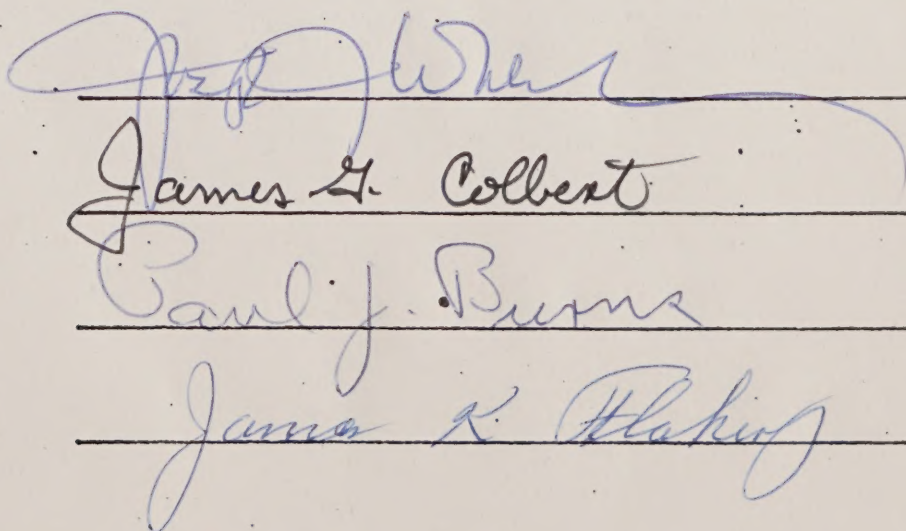 James G. Colbert
Paul J. Burns
James K. Flaherty